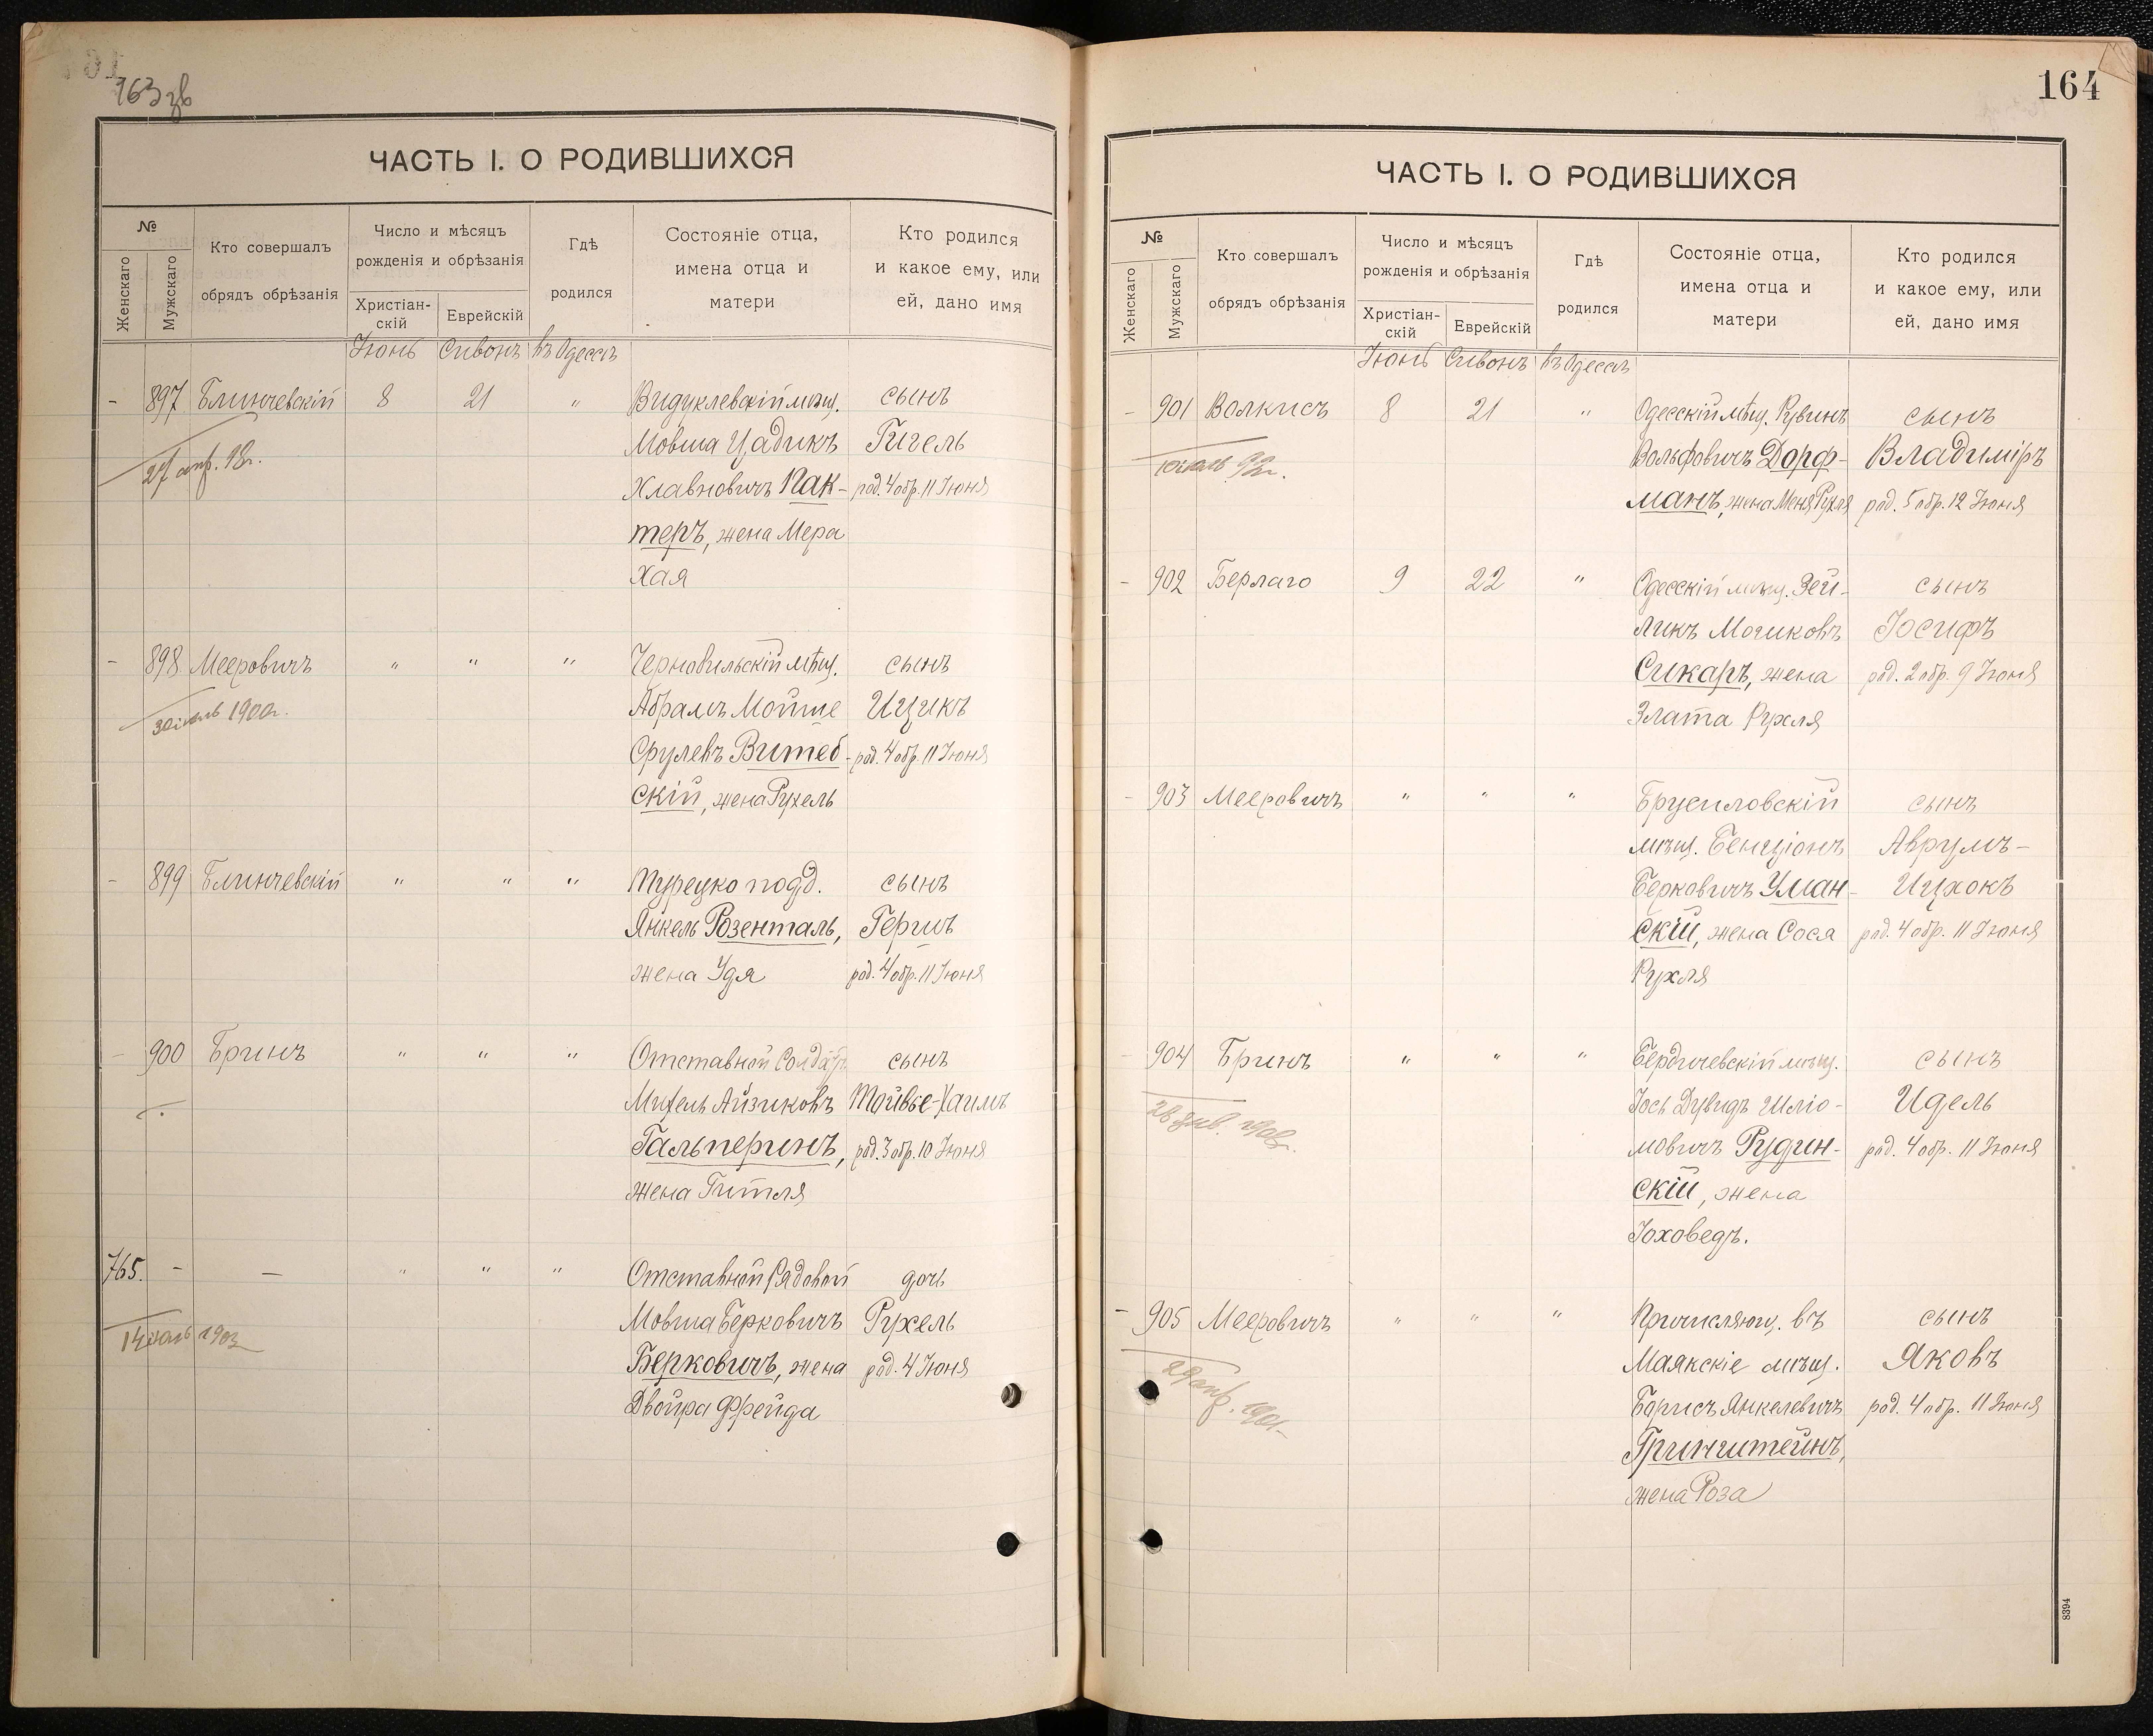 163 зв
ЧАСТЬ I. О РОДИВШИХСЯ
№
Женскаго
Мужскаго
Кто совершалъ
обрядъ обрѣзанія
Число и мѣсяцъ
рожденія и обрѣзанія
Христіан-
скій
Еврейскій
Гдѣ
родился
Состояніе отца,
имена отца и
матери
Кто родился
и какое ему, или
ей, дано имя
Іюнь Сивонъ въ Одессѣ
- 897 Блинчевскій 8 21 " Видуклевскій мѣщ. сынъ
27 апр. 18г.
Мовша Цадикъ Гигель
Хлавновичъ Пак- род. 4 обр. 11 Іюня
теръ, жена Мера
Хая
- 898 Мееровичъ " " " Чернобильскій мѣщ. сынъ
1900г.
Абрамъ Мойше Ицикъ
Срулевъ Витеб- род. 4 обр. 11 Іюня
скій, жена Рухель
- 899 Блинчевскій " " " Турецко подд. сынъ
Янкель Розенталь, Гершъ
жена Удя род. 4 обр. 11 Іюня
- 900 Бринъ " " " Отставной Солдатъ сынъ
Михель Айзиковъ Тойвье-Хаимъ
Гальперинъ, род. 3 обр. 10 Іюня
жена Гитля
765. - — " " " Отставной Рядовой дочь
14 1903
Мовша Берковичъ Рухель
Берковичъ, жена род. 4 Іюня
Двойра Фрейда
164
ЧАСТЬ I. О РОДИВШИХСЯ
№
Женскаго
Мужскаго
Кто совершалъ
обрядъ обрѣзанія
Число и мѣсяцъ
рожденія и обрѣзанія
Христіан-
скій
Еврейскій
Гдѣ
родился
Состояніе отца,
имена отца и
матери
Кто родился
и какое ему, или
ей, дано имя
Іюнь Сивонъ въ Одессѣ
- 901 Волкисъ 8 21 " Одесскій мѣщ. Рувинъ сынъ
Вольфовичъ Дорф- Владиміръ
манъ, жена Меня Рухля род. 5 обр. 12 Іюня
- 902 Берлаго 9 22 " Одесскій мѣщ. Зей- сынъ
ликъ Мошковъ Іосифъ
Сикаръ, жена род. 2 обр. 9 Іюня
Злата Рухля
- 903 Мееровичъ " " " Брусиловскій сынъ
мѣщ. Бенціонъ Аврумъ-
Берковичъ Уман- Ицхокъ
скій, жена Сося род. 4 обр. 11 Іюня
Рухля
- 904 Бринъ " " " Бердичевскій мѣщ. сынъ
Іось Дувидъ Шліо- Идель
мовичъ Рудин- род. 4 обр. 11 Іюня
скій, жена
Іоховедъ.
- 905 Мееровичъ " " " Причисляющ. въ сынъ
29 апр. 1901
Маякскіе мѣщ. Яковъ
Борисъ Янкелевичъ род. 4 обр. 11 Іюня
Гринштейнъ,
жена Роза
8394